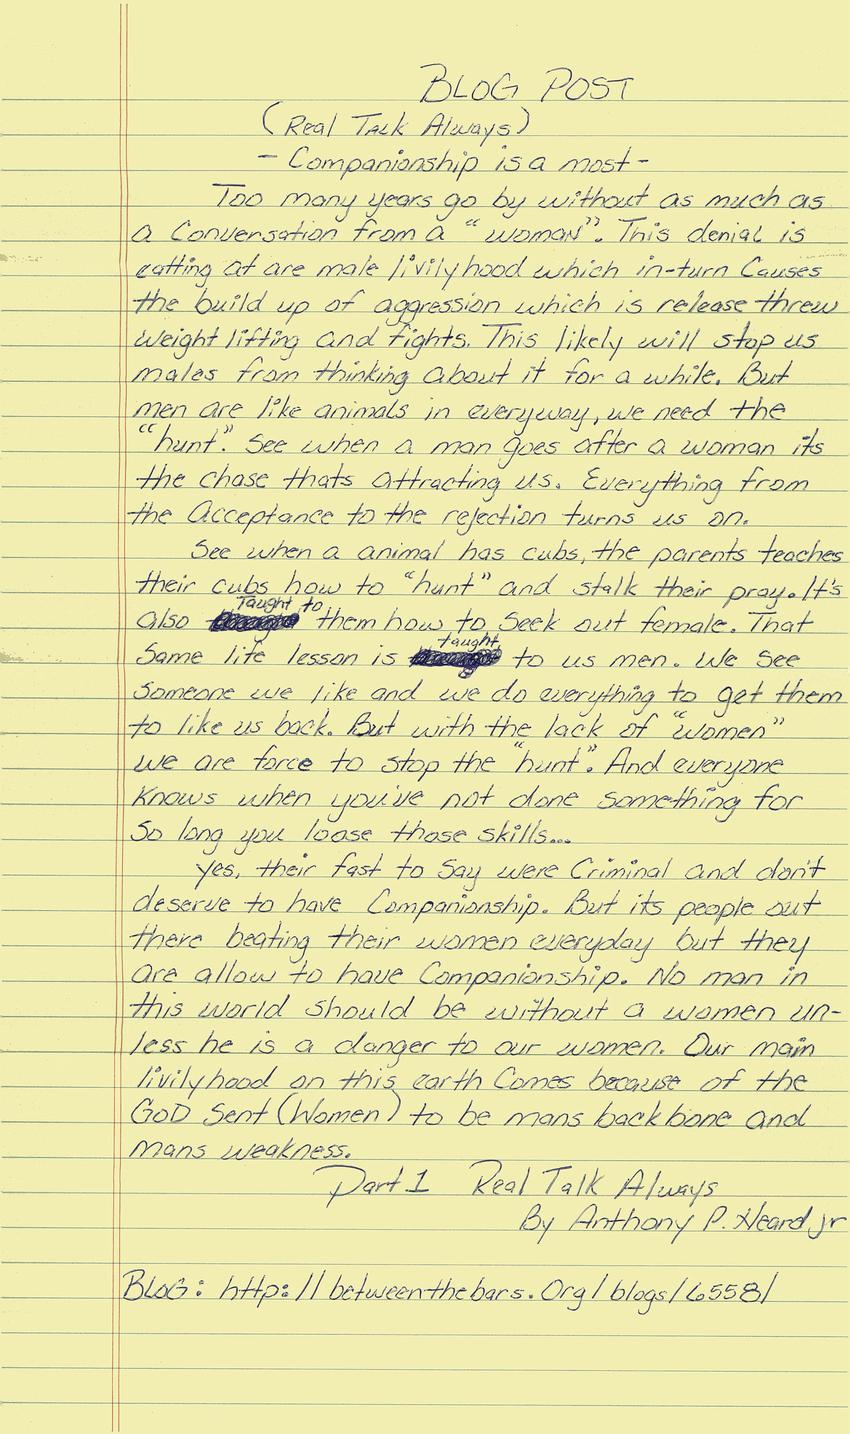 BLOG POST
(Real Talk Always)
- Companionship is a most -
Too many years go by without as much as
a Conversation from a "woman". This denial is
eatting at are male livilyhood which in-turn Causes
the build up of aggression which is release threw
weight lifting and fights. This likely will stop us
males from thinking about it for a while. But
men are like animals in everyway, we need the
"hunt". See when a man goes after a woman its
the chase thats attracting us. Everything from
the Acceptance to the rejection turns us on.
See when a animal has cubs, the parents teaches
their cubs how to "hunt" and stalk their pray. It's
also Taught to them how to seek out female. That
Same life lesson is taught to us men. We see
someone we like and we do everything to get them
to like us back. But with the lack of "women"
we are force to stop the "hunt". And everyone
knows when you've not done something for
so long you loose those skills...
Yes, their fast to say were Criminal and don't
deserve to have Companionship. But its people out
there beating their women everyday but they
are allow to have Companionship. No man in
this world should be without a women un-
less he is a danger to our women. Our main
livilyhood on this earth Comes because of the
GOD Sent (Women) to be mans backbone and
mans weakness.
Part 1 Real Talk Always
By Anthony P. Heard jr
BLOG: http://betweenthebars.Org/blogs/6558/